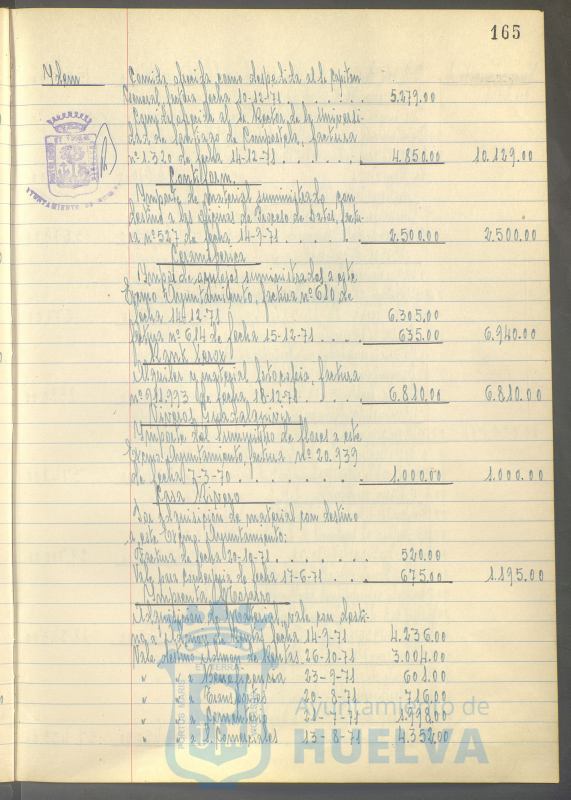 165
Idem Comida ofrecida como despedida al Sr. Capitan
General, factura fecha 10-12-71 . . . . . . 5.279.00
Comida ofrecida al Sr. Rector de la Universi-
dad de Santiago de Compostela, factura
nº 1.320 de fecha 14-12-71 . . . . . . 4.850.00 10.129.00
AYUNTAMIENTO DE
Importe de material suministrado con
destino a las oficinas de Proceso de Datos, factu-
ra nº 527 de fecha 14-9-71 . . . . . . 2.500.00 2.500.00
Ceramiberica
Importe de azulejos suministrados a este
Excmo Ayuntamiento, factura nº 610 de
fecha 14-12-71 6.305.00
Factura nº 614 de fecha 15-12-71 . . . . 635.00 6.940.00
Rank Xerox
Alquiler y material fotocopia, factura
nº 911.993 de fecha 18-12-71 . . . . 6.810.00 6.810.00
Viveros Guadalquivir
Importe del suministro de flores a este
Excmo Ayuntamiento, factura nº 20.939
de fecha 7-3-70 . . . . . . . . 1.000.00 1.000.00
Casa Rivero
Por adquisición de material con destino
a este Excmo. Ayuntamiento:
Factura de fecha 20-10-71 . . . . . . 520.00
Vale para Conserjeria de fecha 17-6-71 . . . 675.00 1.195.00
Imprenta
Adquisición de Material, vale con desti-
no a Admon de Rentas fecha 14-9-71 4.236.00
Vale destino Admon de Rentas 26-10-71 3.004.00
" " a Beneficencia 23-9-71 601.00
" " a Transportes 20-8-71 716.00
" " a Cementerio 21-7-71 1.998.00
" " a S. Comerciales 13-8-71 4.352.00
Ayuntamiento de
HUELVA